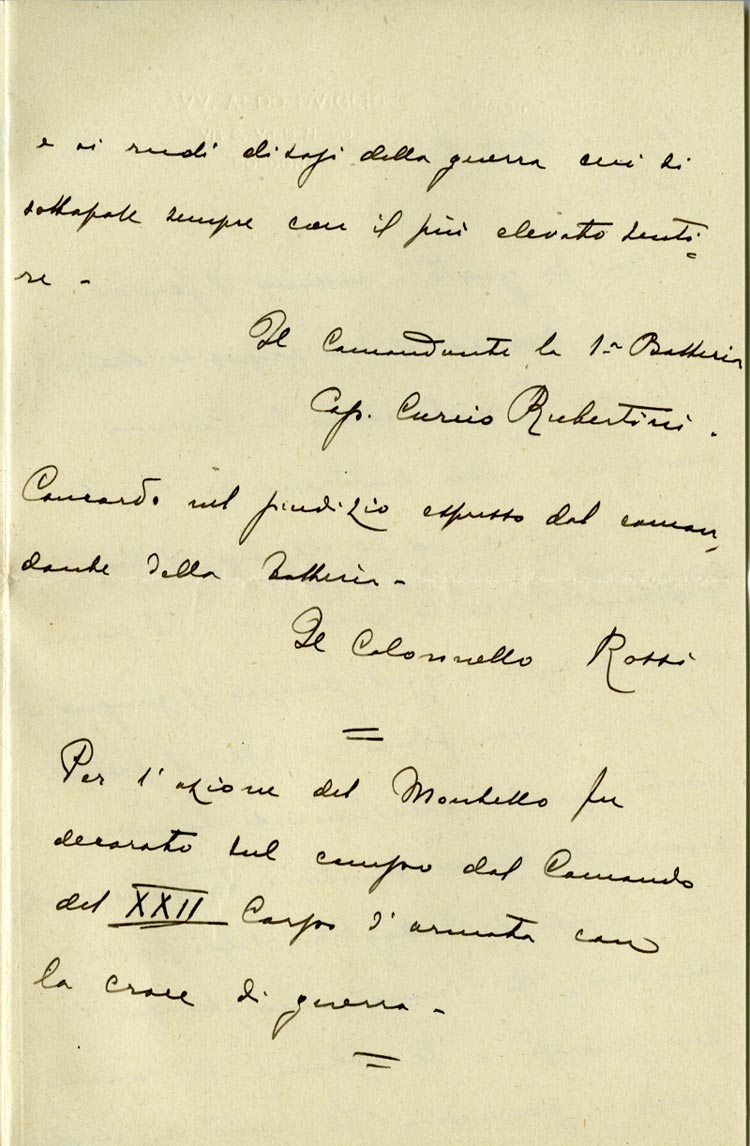 e ai rudi disagi della guerra cui si
sottopose sempre con il più elevato senti=
re -
Il Comandante la 1ª Batteria
Cap. Curzio Rubertini.
Concordo nel giudizio espresso dal coman,
dante della batteria -
Il Colonnello Rossi
=
Per l'azione del Montello fu
decorato sul campo dal Comando
del XXII Corpo d'armata con
la croce di guerra -
=